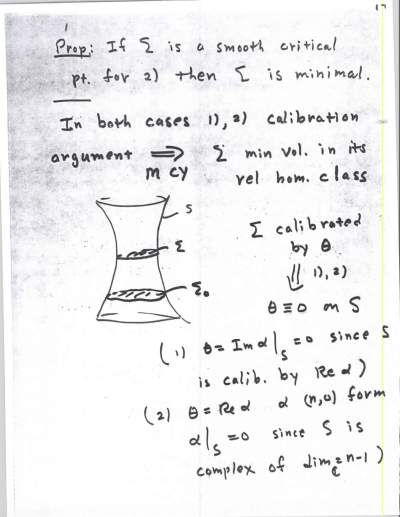 17
Prop: If Σ is a smooth critical
pt. for 2) then Σ is minimal.
In both cases 1), 2) calibration
argument ⟹ Σ min vol. in its
M CY rel hom. class
S
Σ
Σ₀
Σ calibrated
by θ
⇓ 1), 2)
θ ≡ 0 on S
(1) θ = Im α|_S = 0 since S
is calib. by Re α)
(2) θ = Re α α (n,0) form
α|_S = 0 since S is
complex of dim_ℂ = n-1)